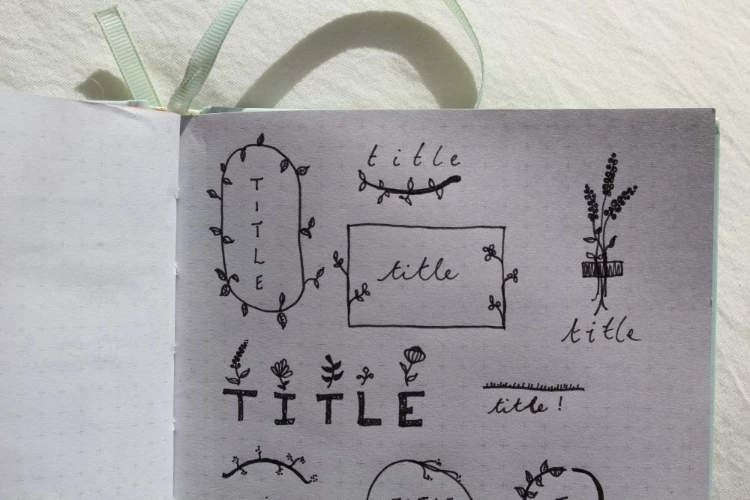 title
TITLE
title
title
TITLE
title!